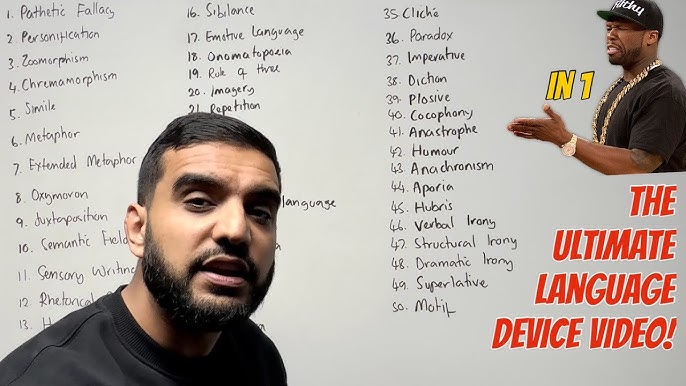 1. Pathetic Fallacy
2. Personification
3. Zoomorphism
4. Chremamorphism
5. Simile
6. Metaphor
7. Extended Metaphor
8. Oxymoron
9. Juxtaposition
10. Semantic Field
11. Sensory Writing
12. Rhetorical
13.
16. Sibilance
17. Emotive Language
18. Onomatopoeia
19. Rule of three
20. Imagery
21. Repetition
language
35 Cliché
36. Paradox
37. Imperative
38. Diction
39. Plosive
40. Cocophony
41. Anastrophe
42. Humour
43. Anachronism
44. Aporia
45. Hubris
46. Verbal Irony
47. Structural Irony
48. Dramatic Irony
49. Superlative
50. Motif
IN 1
THE
ULTIMATE
LANGUAGE
DEVICE VIDEO!